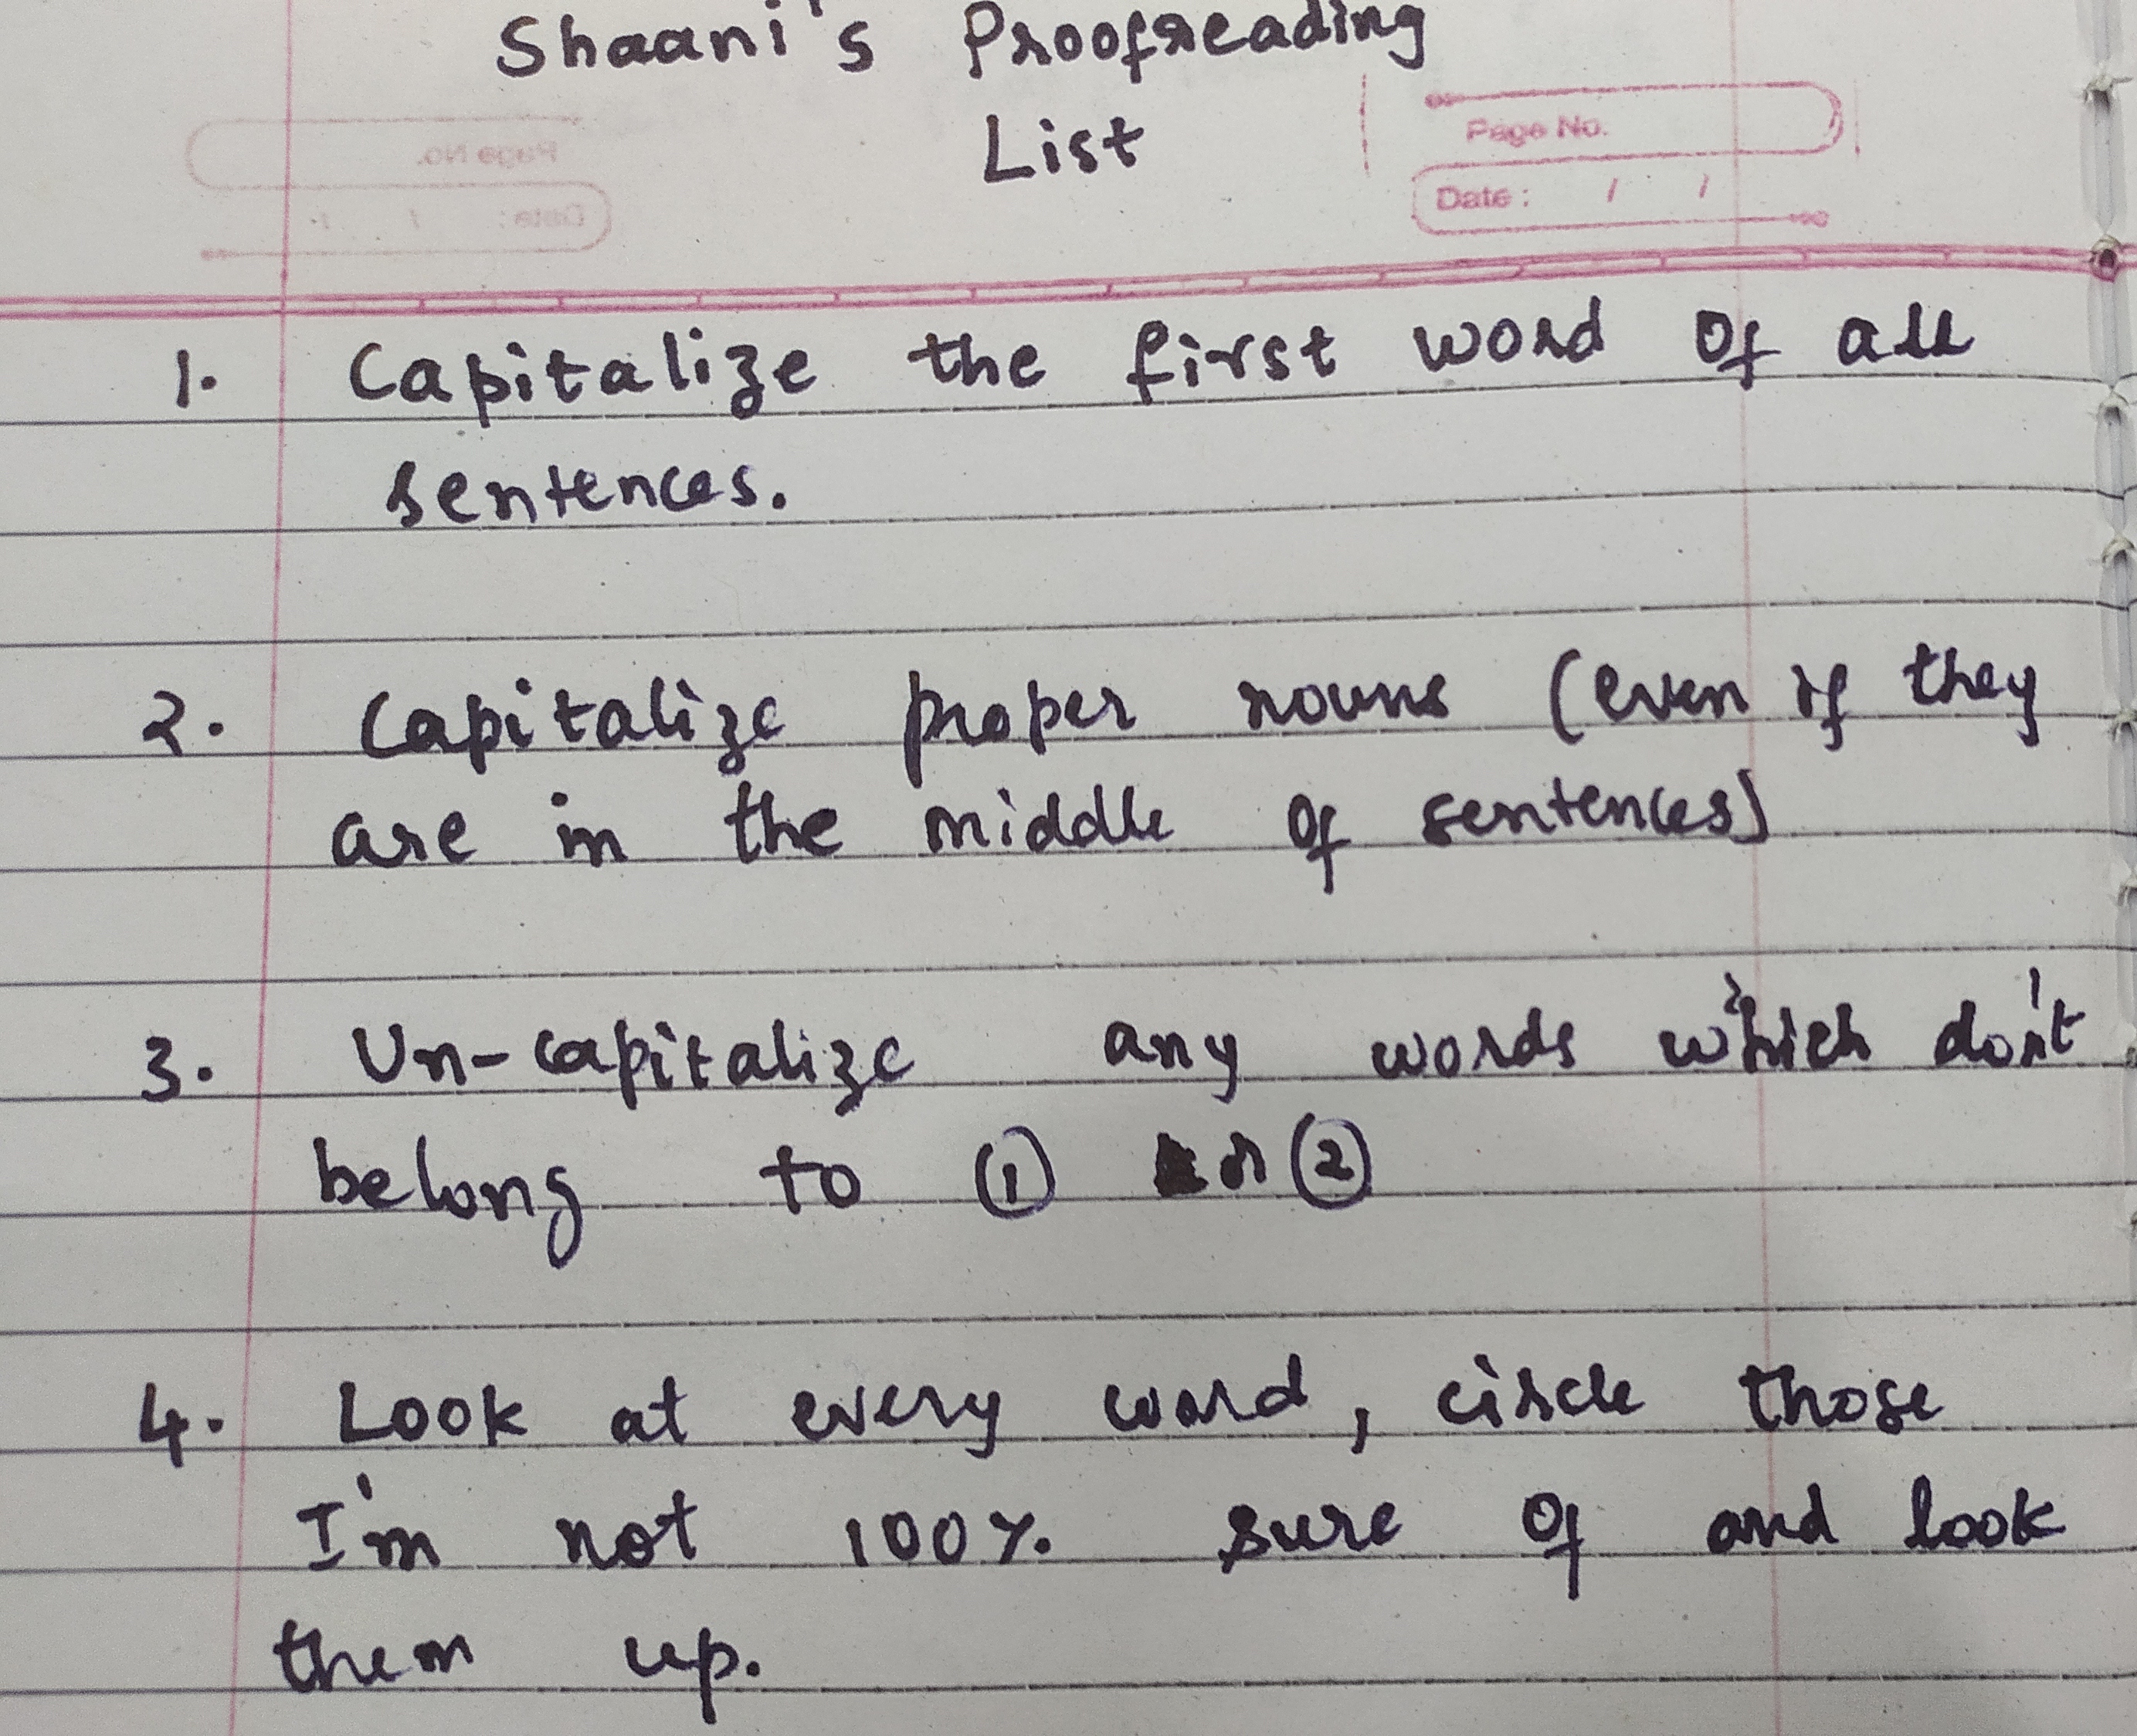 Shaani's Proofreading
List
Page No.
Date: / /
1. Capitalize the first word of all
sentences.
2. Capitalize proper nouns (even if they
are in the middle of sentences)
3. Un-capitalize any words which don't
belong to ① or ②
4. Look at every word, circle those
I'm not 100% sure of and look
them up.